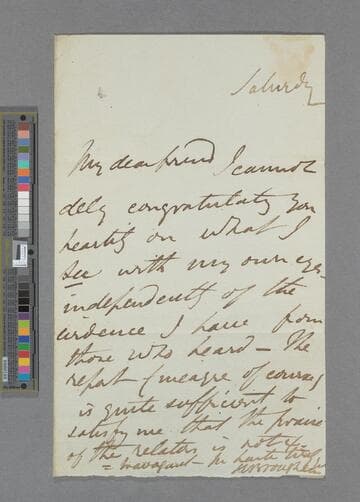 Saturday
My dear friend I cannot
delay congratulating you
heartily on what I
see with my own eyes
independently of the
evidence I have from
those who heard – The
report – (meagre of course)
is quite sufficient to
satisfy me that the praise
of the relaters is not ex
= travagant – In haste
H Brougham